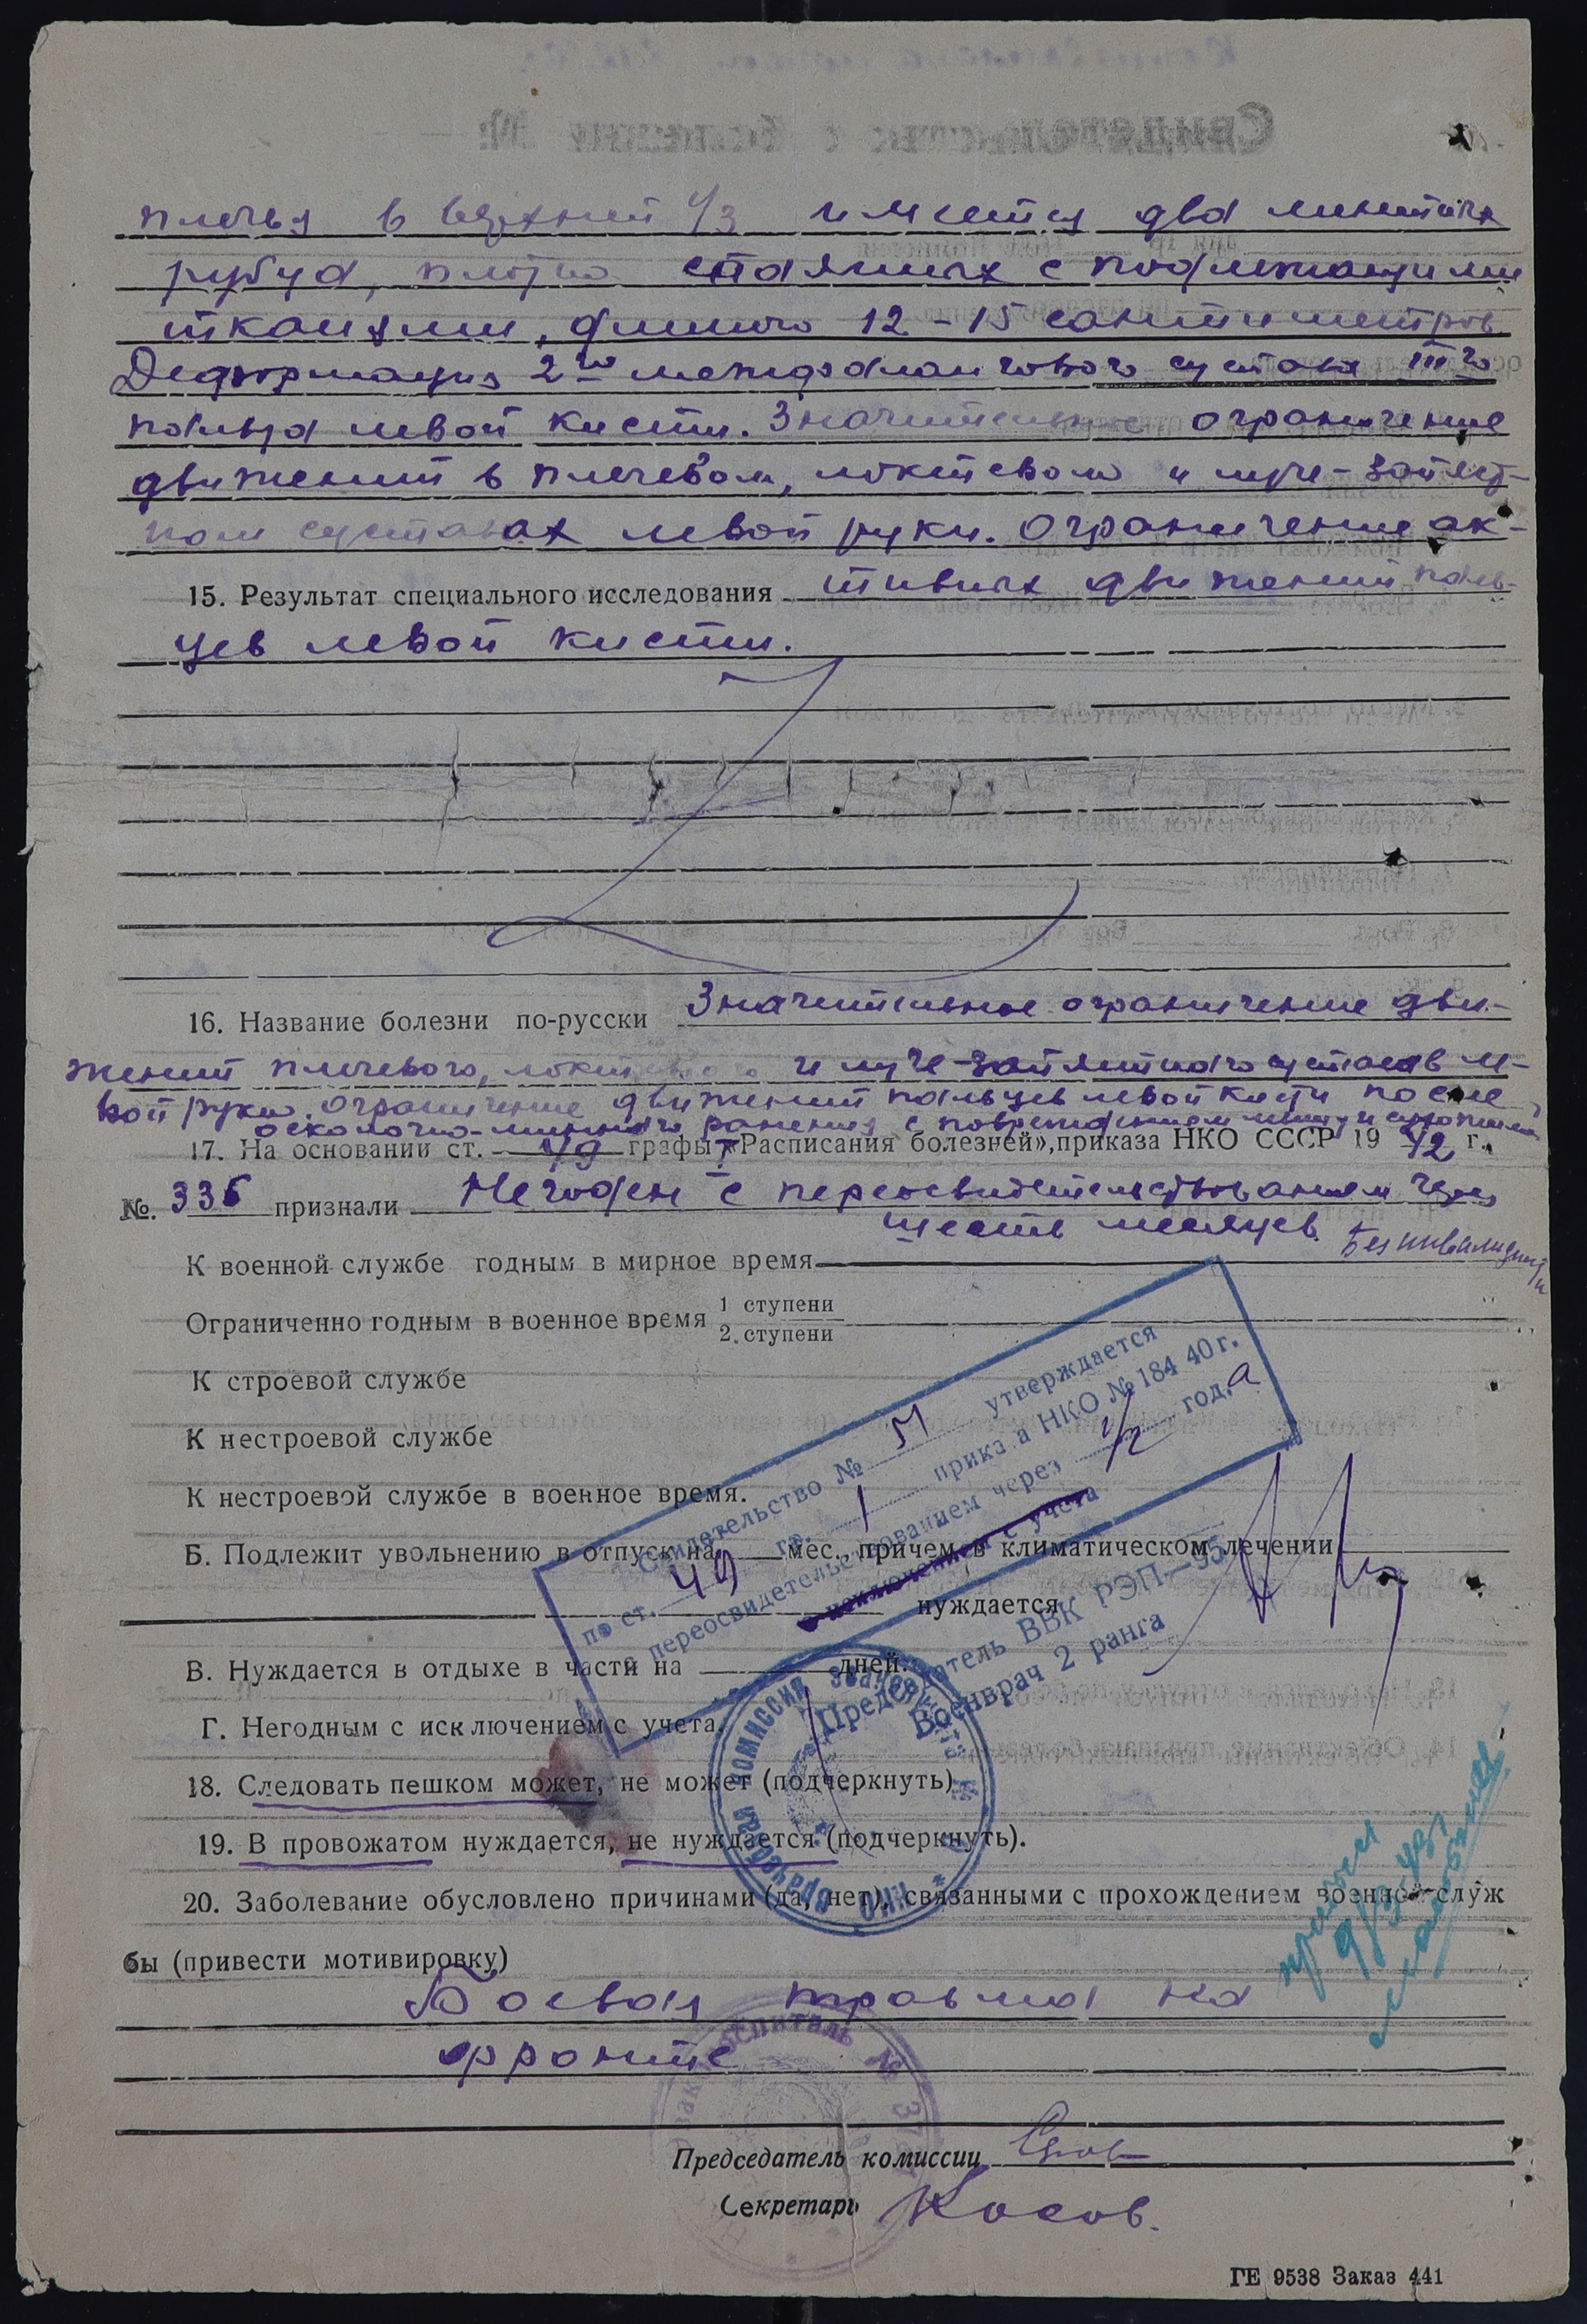 плечья в верхней 1/3 имеется два линейных
рубца, плотно спаянных с подлежащими
тканями, длиною 12-15 сантиметров.
Деформация 2го межфалангового сустава IIIго
пальца левой кисти. Значительное ограничение
движений в плечевом, локтевом и луче-запяст-
ном суставах левой руки. Ограничение ак-
15. Результат специального исследования тивных движений паль-
цев левой кисти.
16. Название болезни по-русски Значительное ограничение дви-
жений плечевого, локтевого и луче-запястного суставов ле-
вой руки. Ограничение движений пальцев левой кисти после
осколочно-минного ранения с повреждением мышц и сухожилий
17. На основании ст. 49 графы I «Расписания болезней», приказа НКО СССР 1942 г.
№. 336 признали Негоден с переосвидетельствованием через
шесть месяцев. Без инвалидности
К военной службе годным в мирное время
Ограниченно годным в военное время 1 ступени
2. ступени
К строевой службе
К нестроевой службе
К нестроевой службе в военное время.
Б. Подлежит увольнению в отпуск на мес., причем в климатическом лечении
нуждается
В. Нуждается в отдыхе в части на дней.
Г. Негодным с исключением с учета.
Свидетельство № утверждается
по ст. 49 гр. 1 приказа НКО № 184 40 г.
с переосвидетельствованием через 1/2 года
с исключением с учета
Председатель ВВК РЭП—95
Военврач 2 ранга
18. Следовать пешком может, не может (подчеркнуть)
19. В провожатом нуждается, не нуждается (подчеркнуть).
20. Заболевание обусловлено причинами (да, нет), связанными с прохождением военной служ
бы (привести мотивировку)
Боевая травма на
фронте
Председатель комиссии
Секретарь Косов.
ГЕ 9538 Заказ 441